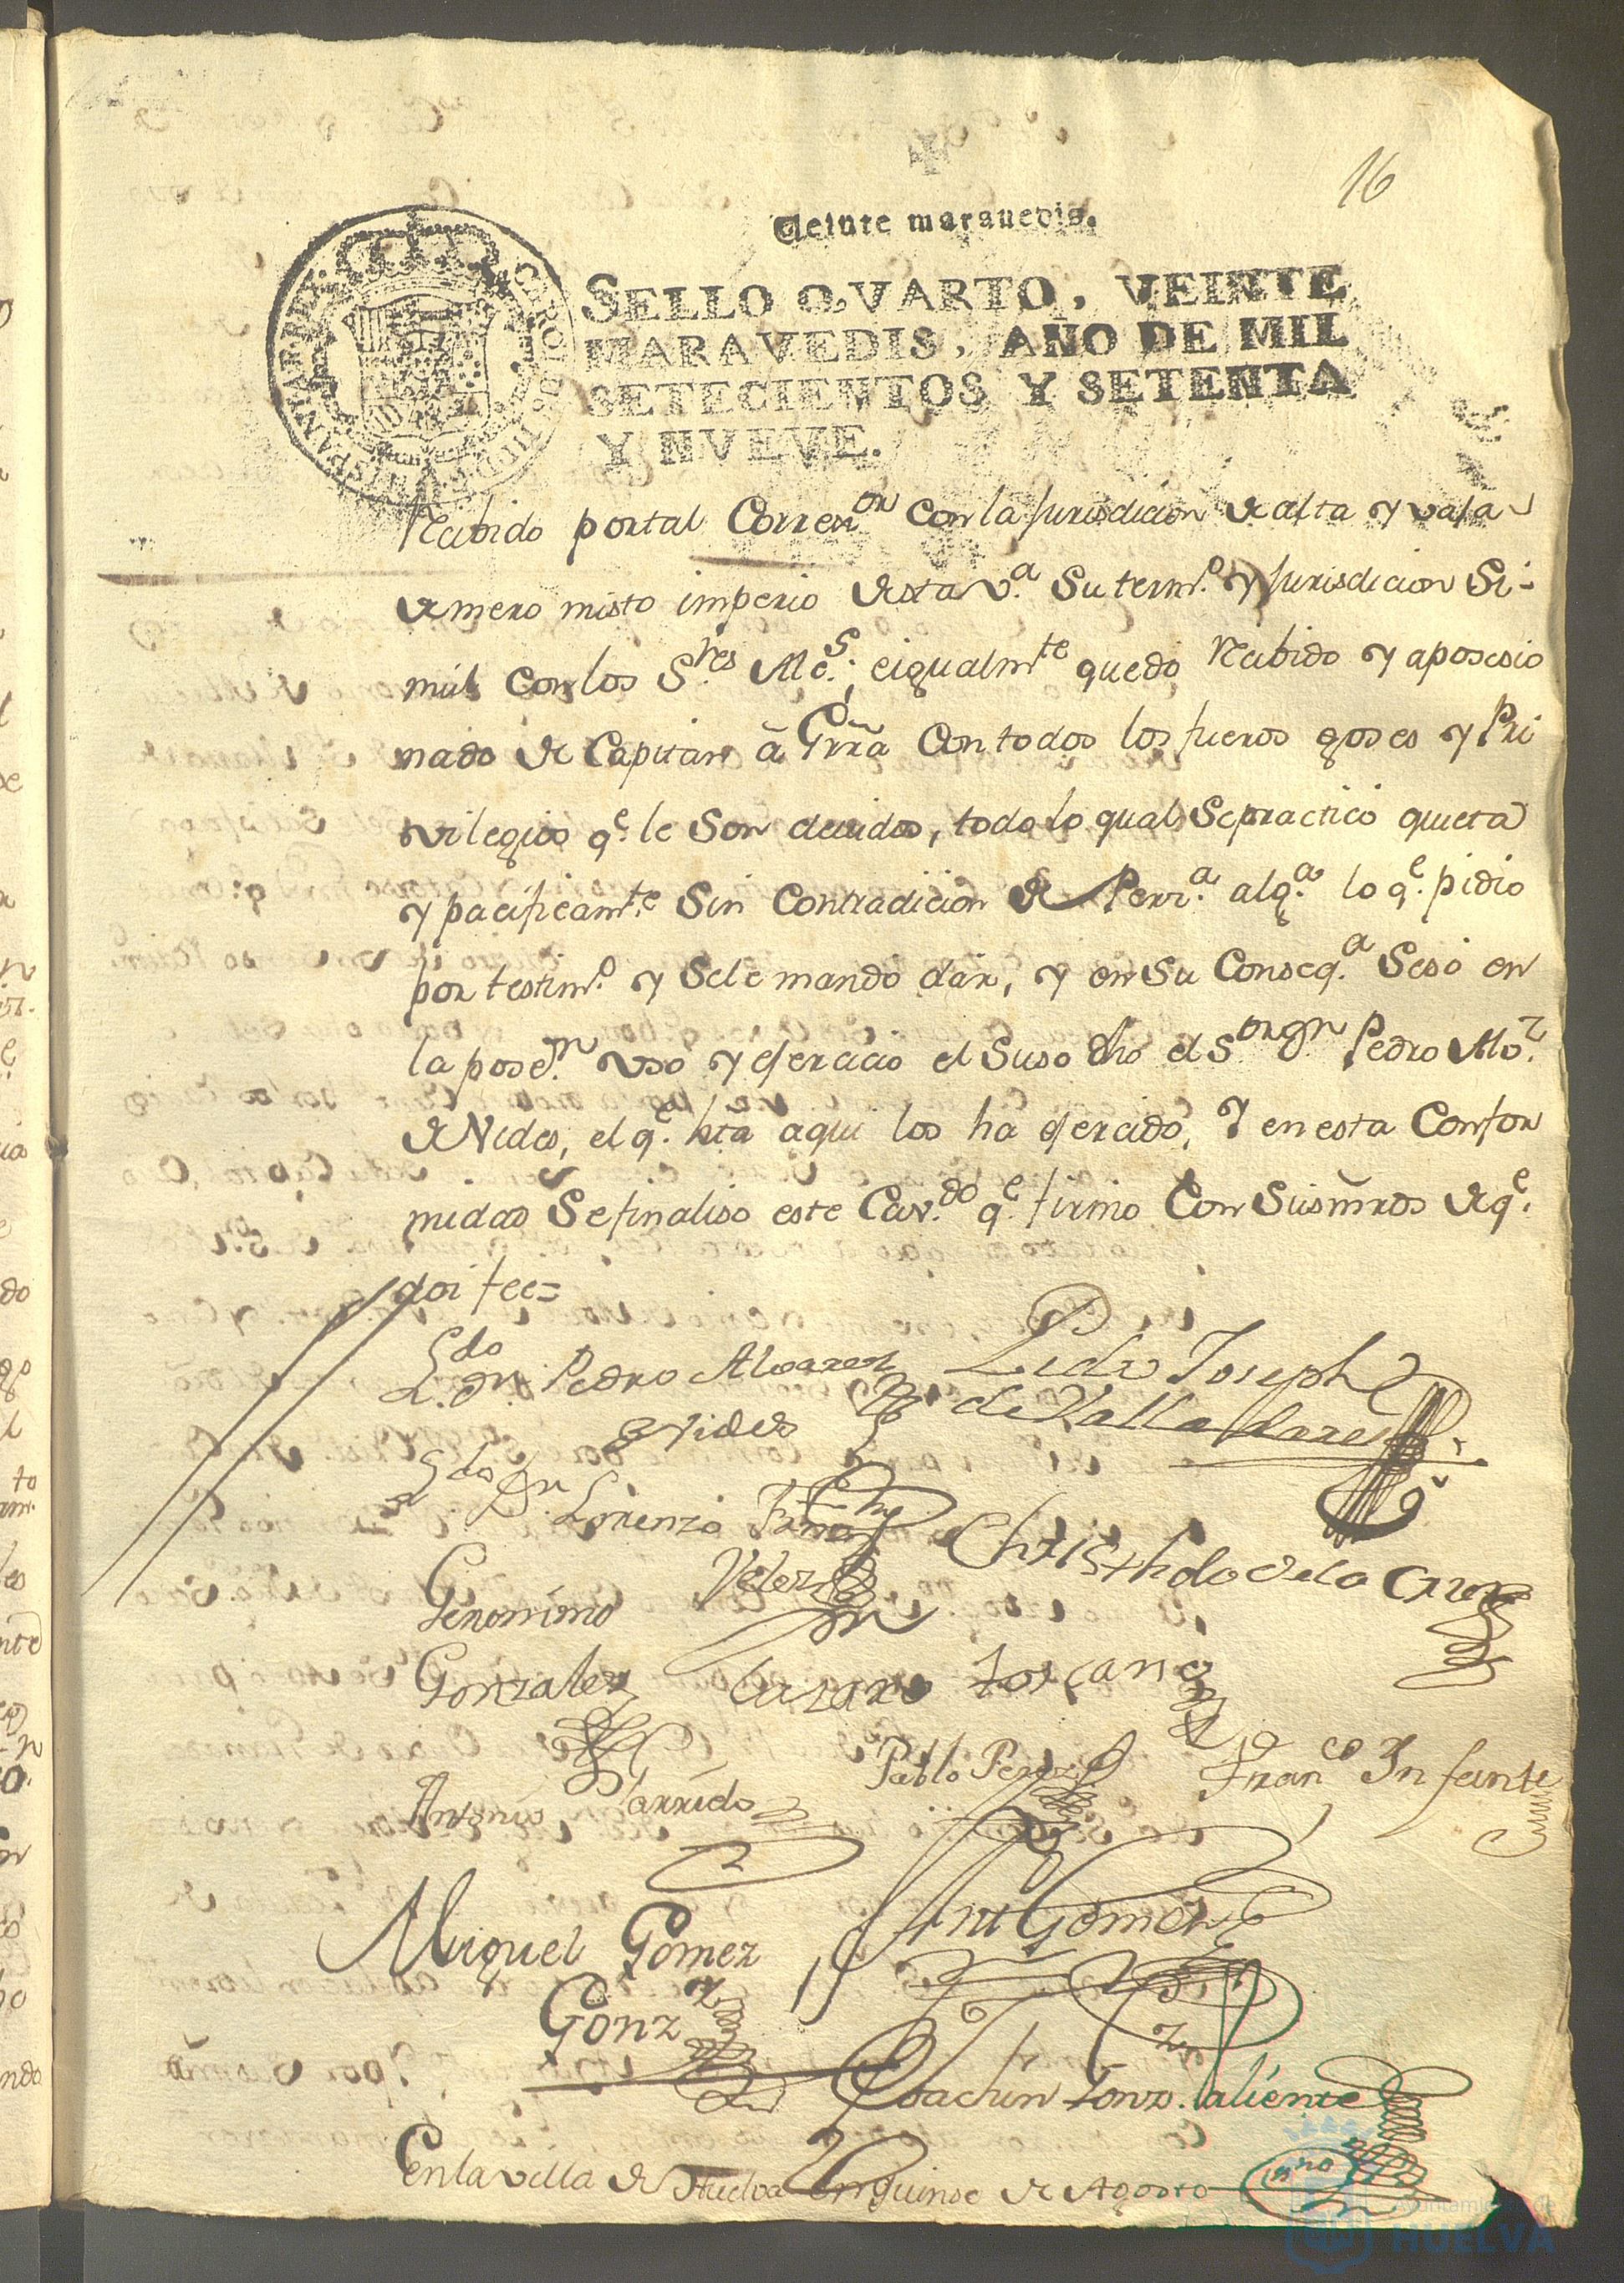 16
Veinte maravedis.
SELLO QVARTO, VEINTE
MARAVEDIS, AÑO DE MIL
SETECIENTOS Y SETENTA
Y NVEVE.
Recibido por tal Correx.on con la Jurisdicion de alta y vaja
de mero misto imperio de esta V.a su term.o y Jurisdicion Si-
mul con los S.res Alc.s; e igualm.te quedo recibido y aposesio
nado de Capitan â Grra Con todos los fueros goses y Pri
vilegios q.e le son devidos, todo lo qual se practicó quieta
y pacificam.te Sin Contradicion de Perz.a alg.a lo q.e pidio
por testim.o y se le mando dár, y en su Conseq.a Sesó en
la poses.n uso y ejercicio el suso dho el S.or D.n Pedro Alv.z
de Vides, el q.e hta aqui los ha ejercido, Y en esta Confor
midad Se finaliso este Cav.do q.e firmo Con Sus mrds de q.e
doi fee=
L.do D.n Pedro Alvarez Pedro Joseph
de Vides de Valladares
L.do Dn Lorenzo
Velez Christhoto de la Cruz
Geronimo
Gonzalez Lazaro toscano
Antonio Garrido Pablo Perez Fran.co Infante
Miguel Gomez Ant Gomez
Gonz.z
Joachin Gonz. Valiente
En la villa de Huelva en quinse de Agosto
Ayuntamiento de
HUELVA